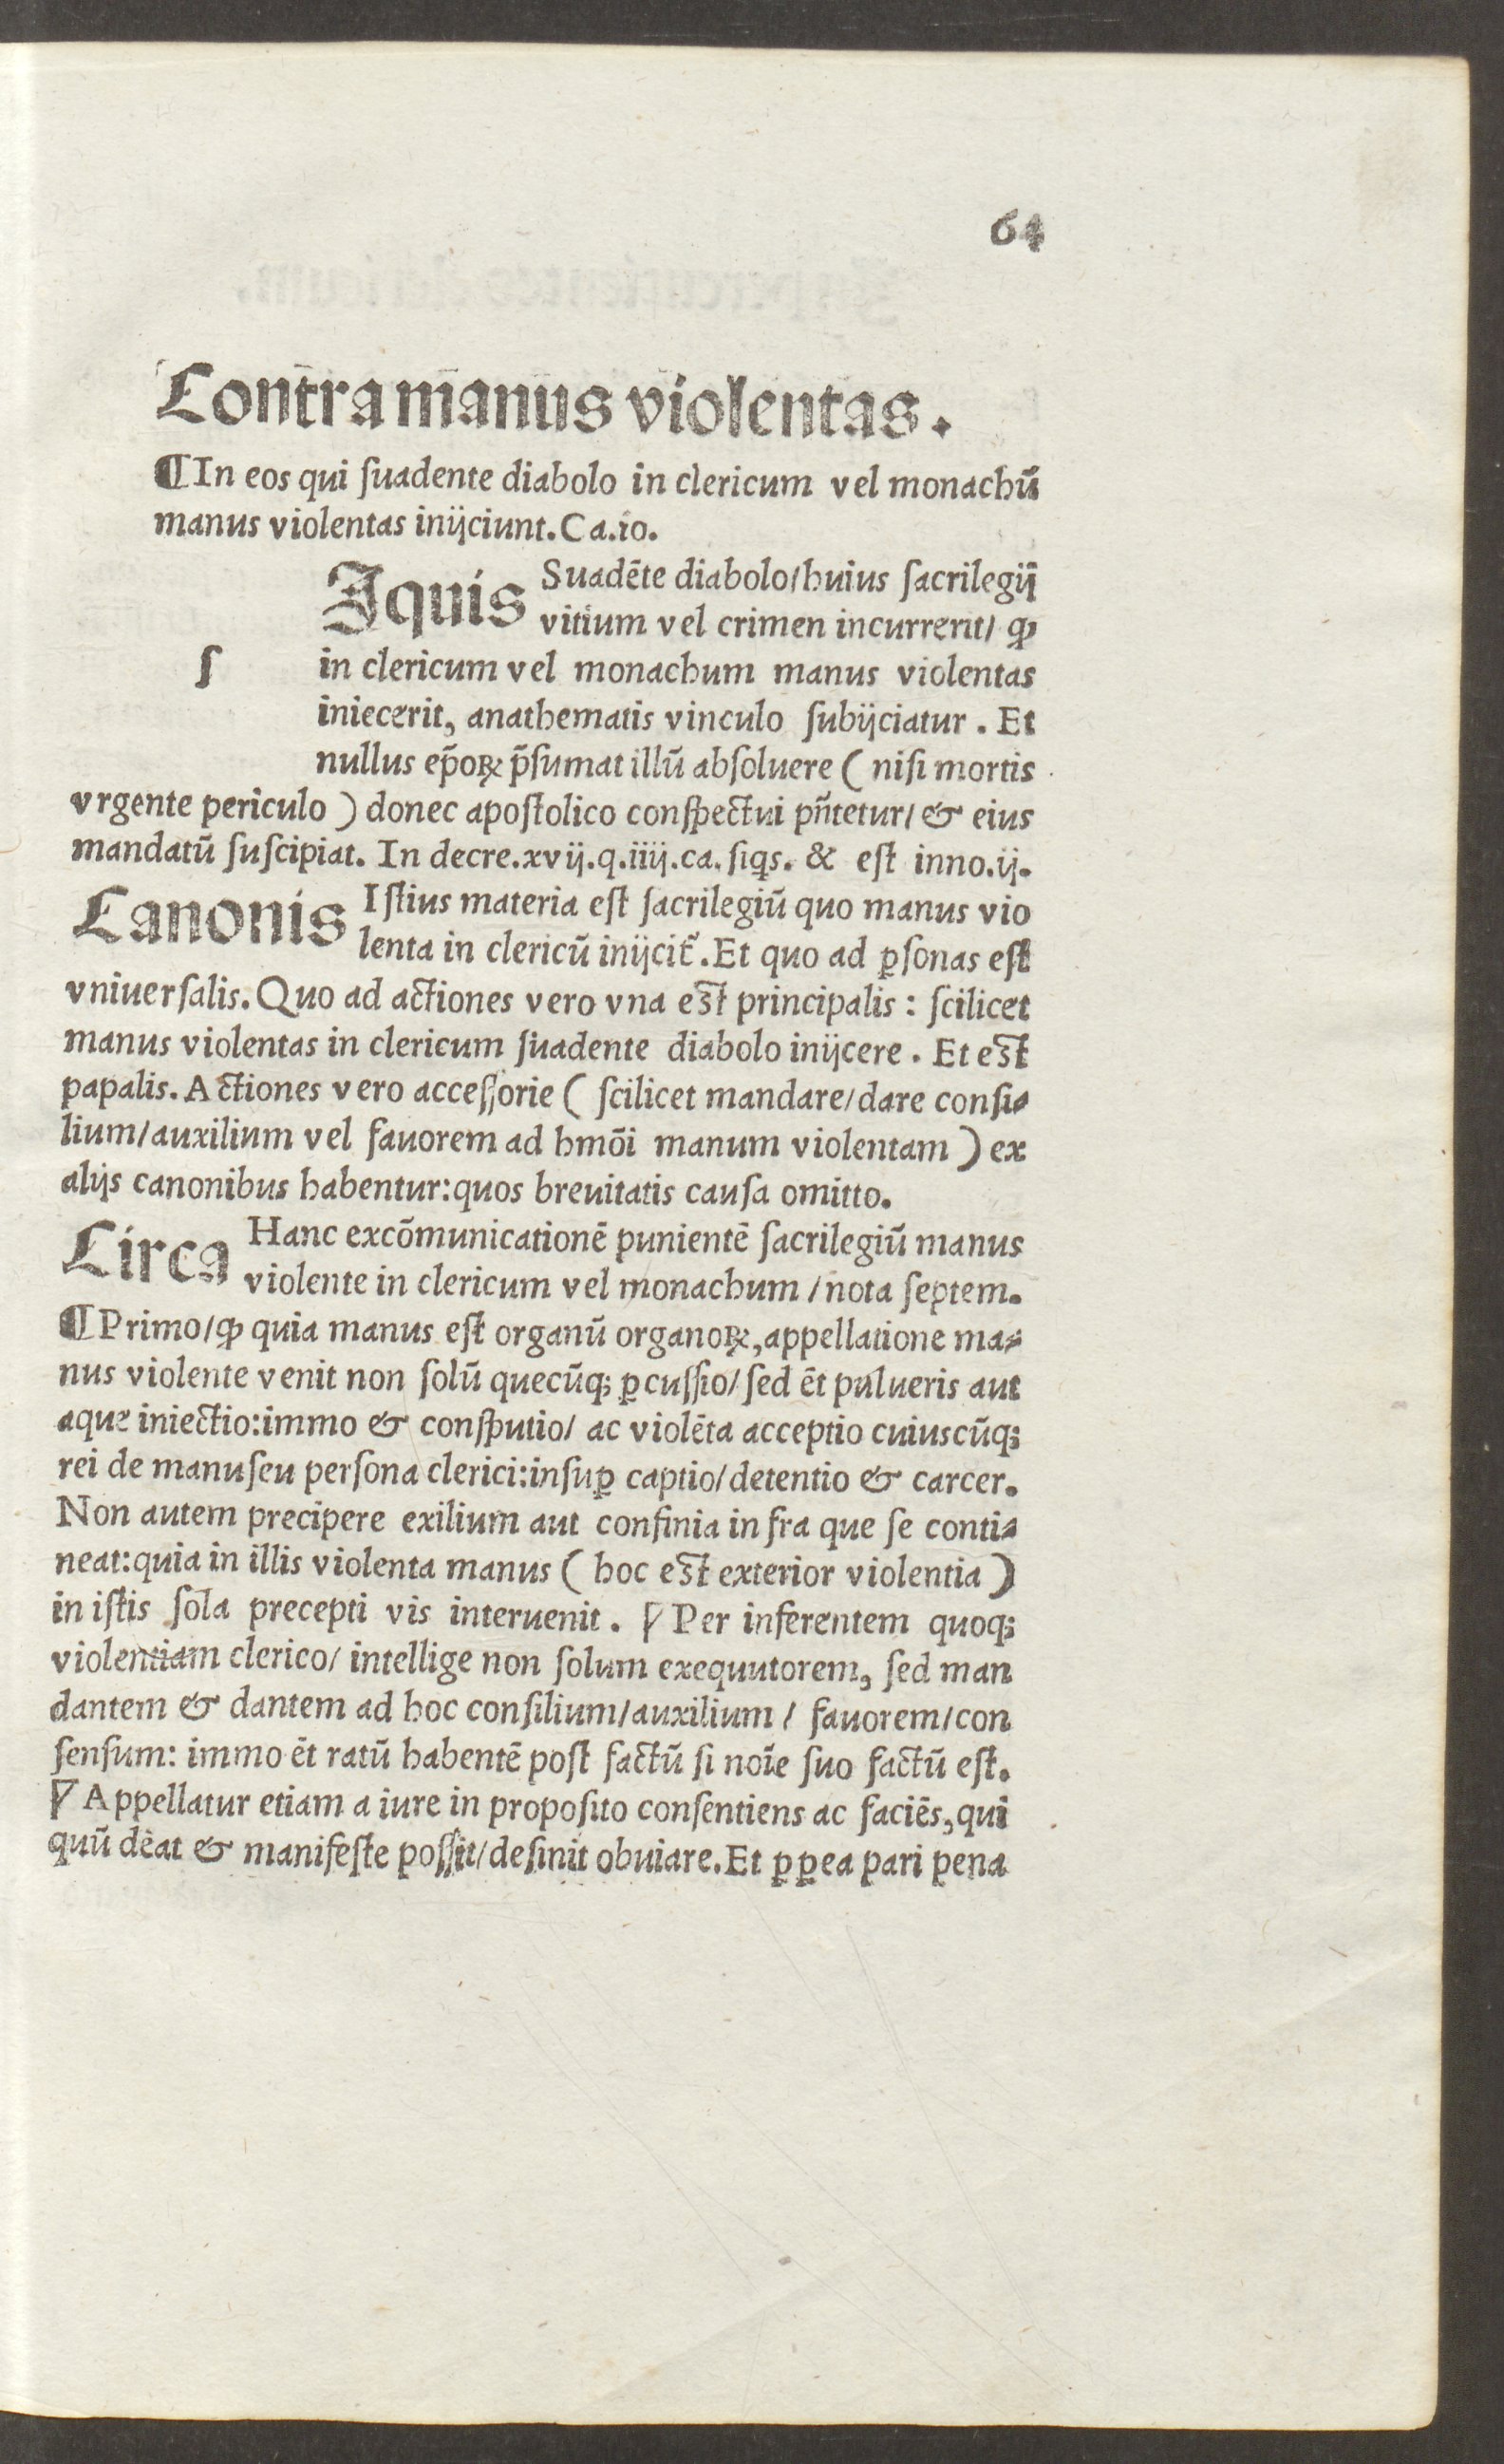 64
Contra manus violentas.
¶In eos qui ſuadente diabolo in clericum vel monachū
manus violentas iniiciunt. Ca.io.
ſ
Iquis Suadēte diabolo/huius ſacrilegij
vitium vel crimen incurrerit/ ꝙ
in clericum vel monachum manus violentas
iniecerit, anathematis vinculo ſubijciatur . Et
nullus ep̄oꝝ p̄ſumat illū abſoluere ( niſi mortis
vrgente periculo ) donec apoſtolico conſpectui pn̄tetur/ & eius
mandatū ſuſcipiat. In decre.xvij.q.iiij.ca.ſiqs. & eſt inno.ij.
Canonis Iſtius materia eſt ſacrilegiū quo manus vio
lenta in clericū inijcit̄. Et quo ad ꝑſonas eſt
vniuerſalis. Quo ad actiones vero vna eſt principalis : ſcilicet
manus violentas in clericum ſuadente diabolo inijcere . Et eſt
papalis. Actiones vero acceſſorie ( ſcilicet mandare/dare conſi⸗
lium/auxilium vel fauorem ad hmōi manum violentam ) ex
alijs canonibus habentur:quos breuitatis cauſa omitto.
Circa Hanc excōmunicationē punientē ſacrilegiū manus
violente in clericum vel monachum /nota ſeptem.
¶Primo/ꝙ quia manus eſt organū organoꝝ,appellatione ma⸗
nus violente venit non ſolū quecūqꝫ ꝑcuſſio/ ſed ēt pulueris aut
aque iniectio:immo & conſputio/ ac violēta acceptio cuiuscūqꝫ
rei de manu ſeu perſona clerici:inſuꝑ captio/detentio & carcer.
Non autem precipere exilium aut confinia infra que ſe conti⸗
neat:quia in illis violenta manus ( hoc eſt exterior violentia )
in iſtis ſola precepti vis interuenit . ꝟ Per inferentem quoqꝫ
violentiam clerico/ intellige non ſolum exequutorem, ſed man
dantem & dantem ad hoc conſilium/auxilium / fauorem/con
ſenſum: immo ēt ratū habentē poſt factū ſi noīe ſuo factū eſt.
ꝟ Appellatur etiam a iure in propoſito conſentiens ac faciēs,qui
quū dēat & manifeſte poſſit/deſinit obuiare. Et ꝑꝑea pari pena